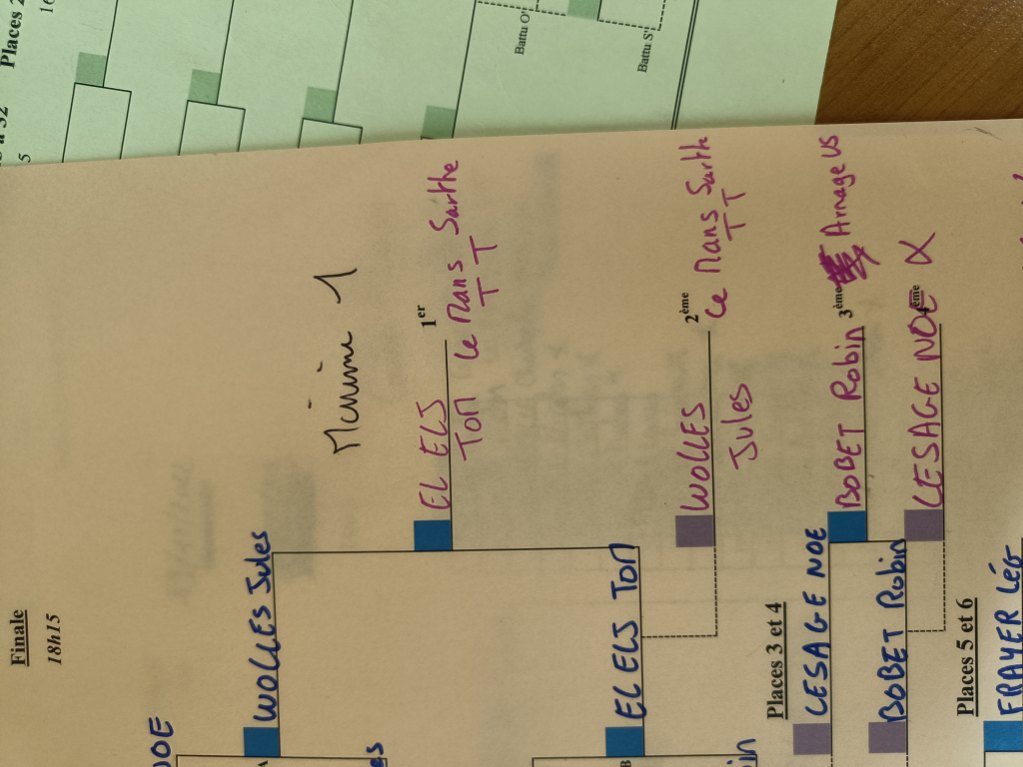 Places 2
16
5
Battu O'
Battu S'
Minime 1
Finale
18h15
WOLLES Jules
A
EL ELJ
1er
TOM
Le Mans Sarthe
T T
EL ELJ TOM
B
WOLLES
2ème
Jules
Le Mans Sarthe
T T
Places 3 et 4
LESAGE NOE
BOBET Robin
BOBET Robin
3ème
Arnage US
LESAGE NOE
Places 5 et 6